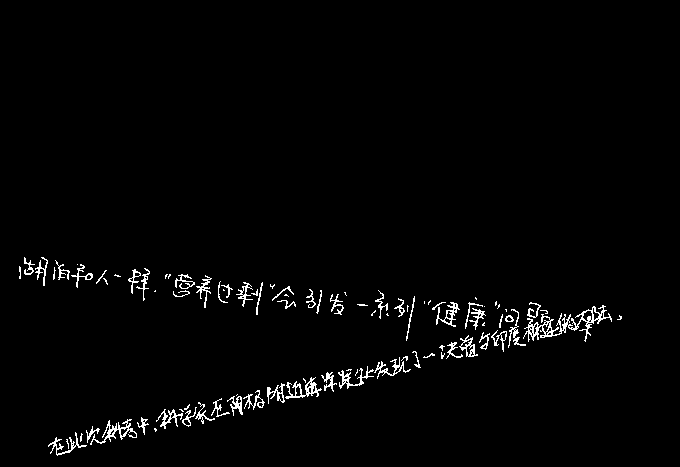 湖泊和人一样，“营养过剩”会引发一系列“健康”问题
在此次科考中，科学家在南极附近海岸处发现了一块与印度相连的大陆。